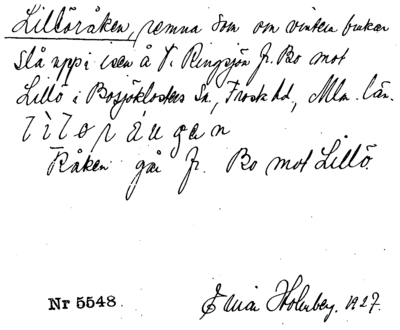 Lillöråken, remna som om vintern brukar
slå upp i isen å V. Ringsjön fr. Bo mot
Lillö i Bosjöklosters Sn, Frosta hd, Mlm. län.
Råken går fr. Bo mot Lillö.
Nr 5548. Holmberg. 1927.